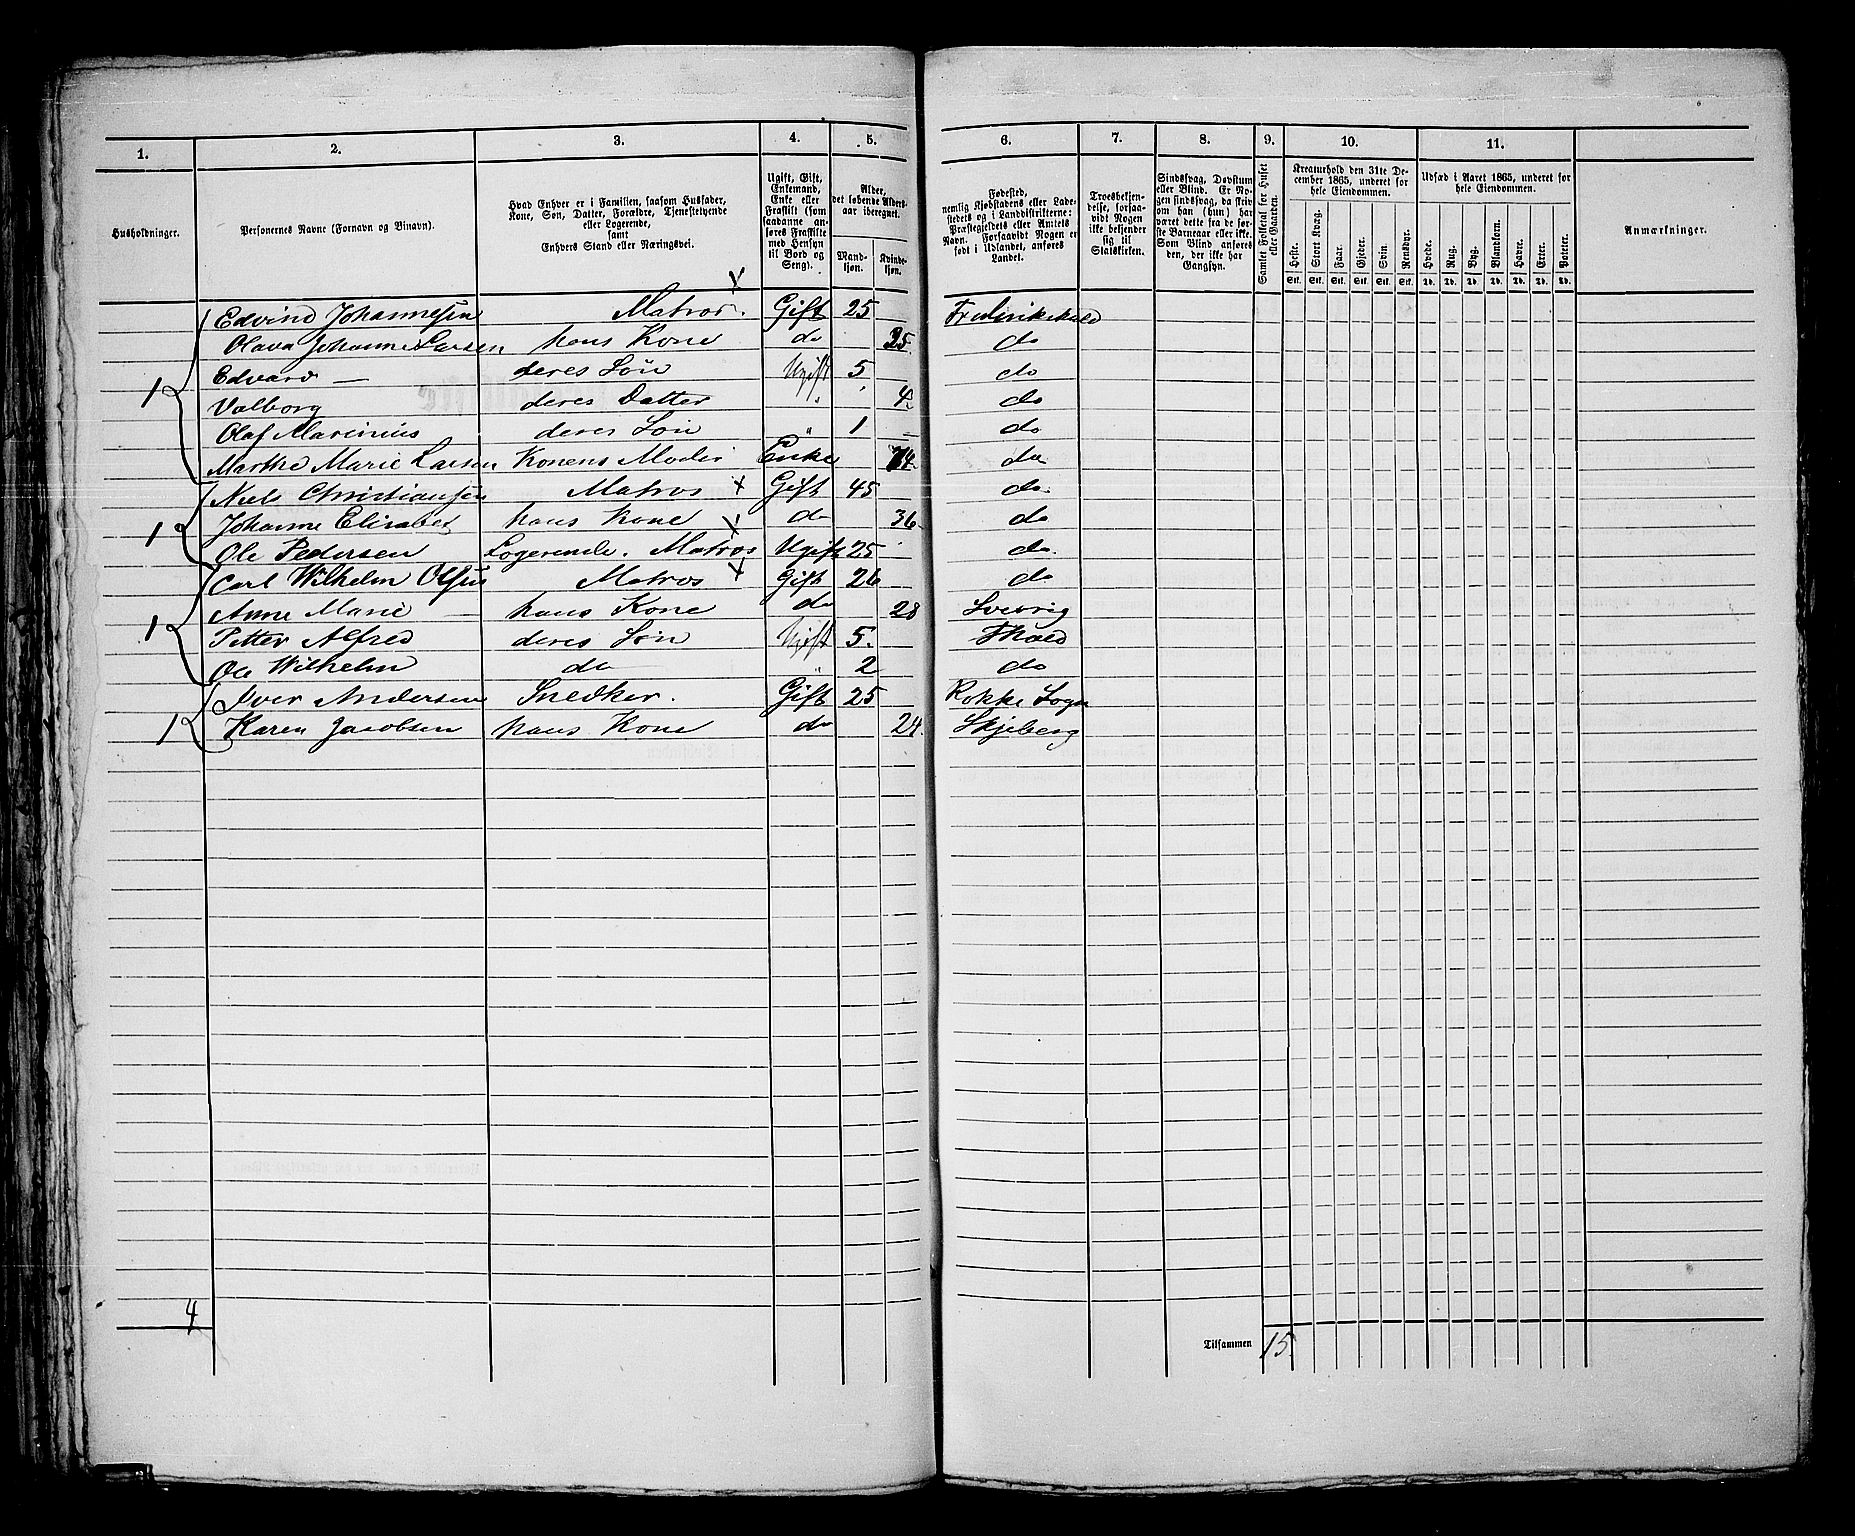 1. 2. 3. 4. 5. 6. 7. 8. 9. 10. 11.
Husholdninger.
Personernes Navne (Fornavn og Binavn).
Hvad Enhver er i Familien, saasom Husfader,
Kone, Søn, Datter, Forældre, Tjenestetyende
eller Logerende,
samt
Enhvers Stand eller Næringsvei.
Ugift, Gift,
Enkemand,
Enke eller
Fraskilt (som
saadanne an-
føres Fraskilte
med Hensyn
til Bord og
Seng).
Alder,
det løbende Alders-
aar iberegnet.
Mand-
kjøn.
Kvinde-
kjøn.
Fødested,
nemlig Kjøbstadens eller Lade-
stedets og i Landdistrikterne:
Præstegjeldets eller Amtets
Navn. Forsaavidt Nogen er
født i Udlandet, anføres
Landet.
Troesbekjen-
delse, forsaa-
vidt Nogen
ikke bekjender
sig til
Statskirken.
Sindssvag, Døvstum
eller Blind. Er No-
gen sindssvag, da skriv
om han (hun) har
været dette fra de før-
ste Barneaar eller ikke.
Som Blind anføres
den, der ikke har
Gangsyn.
Samlet Folketal for Huset
eller Gaarden.
Kreaturhold den 31te De-
cember 1865, underet for
hele Eiendommen.
Heste. Stort Kvæg. Faar. Gjeder. Svin. Rensdyr.
Stk. Stk. Stk. Stk. Stk. Stk.
Udsæd i Aaret 1865, underet for
hele Eiendommen.
Hvede. Rug. Byg. Blandkorn. Havre. Erter. Poteter.
Td. Td. Td. Td. Td. Td. Td.
Anmærkninger.
Edvind Johannesen Matros. Gift 25 Fredrikshald
Olava Johanne Larsen hans Kone do 25 do
1 Edvard — deres Søn Ugift 5 do
Valborg deres Datter " 4 do
Olaf Marinius deres Søn " 1 do
Marthe Marie Larsen Konens Moder Enke 74 do
Niels Christiansen Matros Gift 45 do
1 Johanne Elisabet hans Kone do 36 do
Ole Pedersen Logerende. Matros Ugift 25 do
Carl Wilhelm Olsen Matros Gift 26 do
Anne Marie — hans Kone do 28 Sverrig
1 Petter Alfred deres Søn Ugift 5 Fhald
Ole Wilhelm do " 2 do
Iver Andersen Snedker. Gift 25 Rokke Sogn
1 Karen Jacobsen hans Kone do 24 Skjeberg
4
Tilsammen 15.